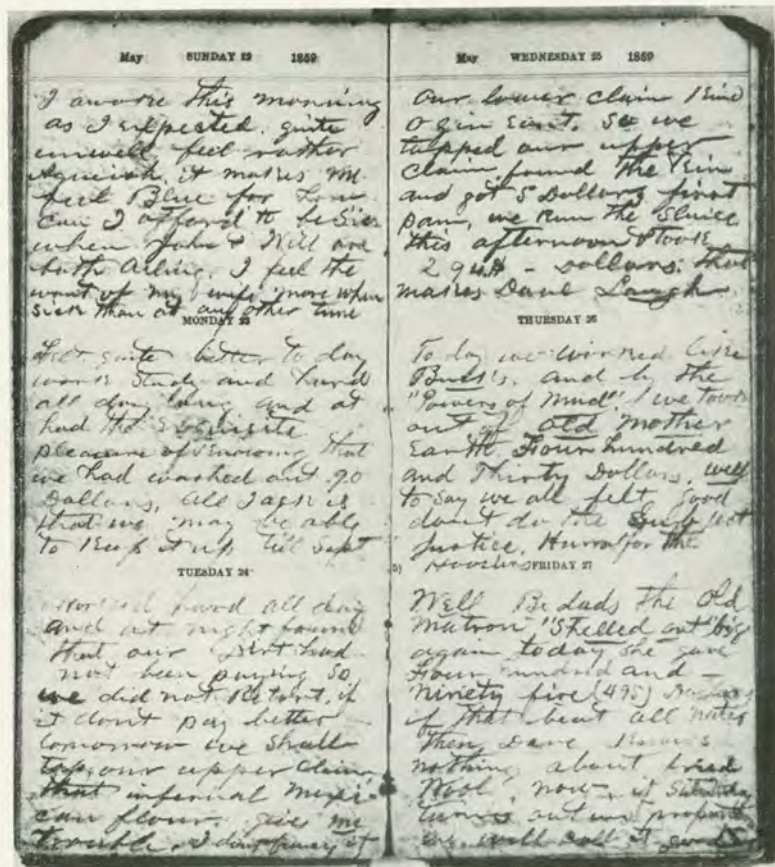 May SUNDAY 22 1859
I awoke this morning
as I expected. quite
unwell feel rather
Aguish. it makes me
feel Blue for how
can I afford to be Sick
when John & Will are
both Ailing. I feel the
want of my wife more when
Sick than at any other time
MONDAY 23
Felt quite better to day
work Study and hard
all day long and at
had the Exquisite
pleasure of Knowing that
we had washed out 90
Dollars, all I ask is
that we may be able
to Keep it up till Sept
TUESDAY 24
worked hard all day
and at night found
that our Dirt had
not been paying So
we did not Retort, if
it dont pay better
tomorrow we Shall
tap our upper Claim
that infernal Mexi-
can flour. gives me
trouble. I dont fancy it
May WEDNESDAY 25 1859
Our lower claim Kind
O gin Eout. So we
tapped our upper
Claim found the
and got 5 Dollars first
pan, we Run the Sluice
this afternoon & took
Dollars. that
makes Dave Laugh
THURSDAY 26
To day we worked like
Buck's. and by the
"Powers of Mud"! we took
out of Old Mother
Earth Four hundred
and Thirty Dollars, well
to Say we all felt good
dont do the Subject
Justice. Hurra for the
Hoosiers
FRIDAY 27
Well Bedads the Old
Matron "Shelled out" big
again today She gave
Four hundred and -
Ninety five (495) Dollars
if that beat all nater
then Dave Knows
nothing about
Wool, now if Saturday
turns out in proportion
we will call it good